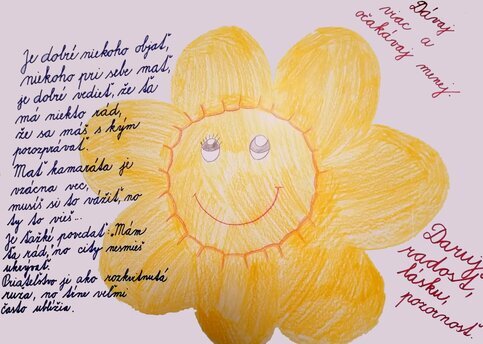 Je dobré niekoho objať,
niekoho pri sebe mať,
je dobré vedieť, že ťa
má niekto rád,
že sa máš s kým
porozprávať.
Mať kamaráta je
vzácna vec,
musíš si to vážiť, no
ty to vieš...
Je ťažké povedať: „Mám
ťa rád, no city nesmieš
ukrývať.
Priateľstvo je ako rozkvitnutá
ruža, no tŕne veľmi
často ublížia.
Dávaj
viac a
očakávaj menej.
Daruj
radosť,
lásku,
pozornosť."